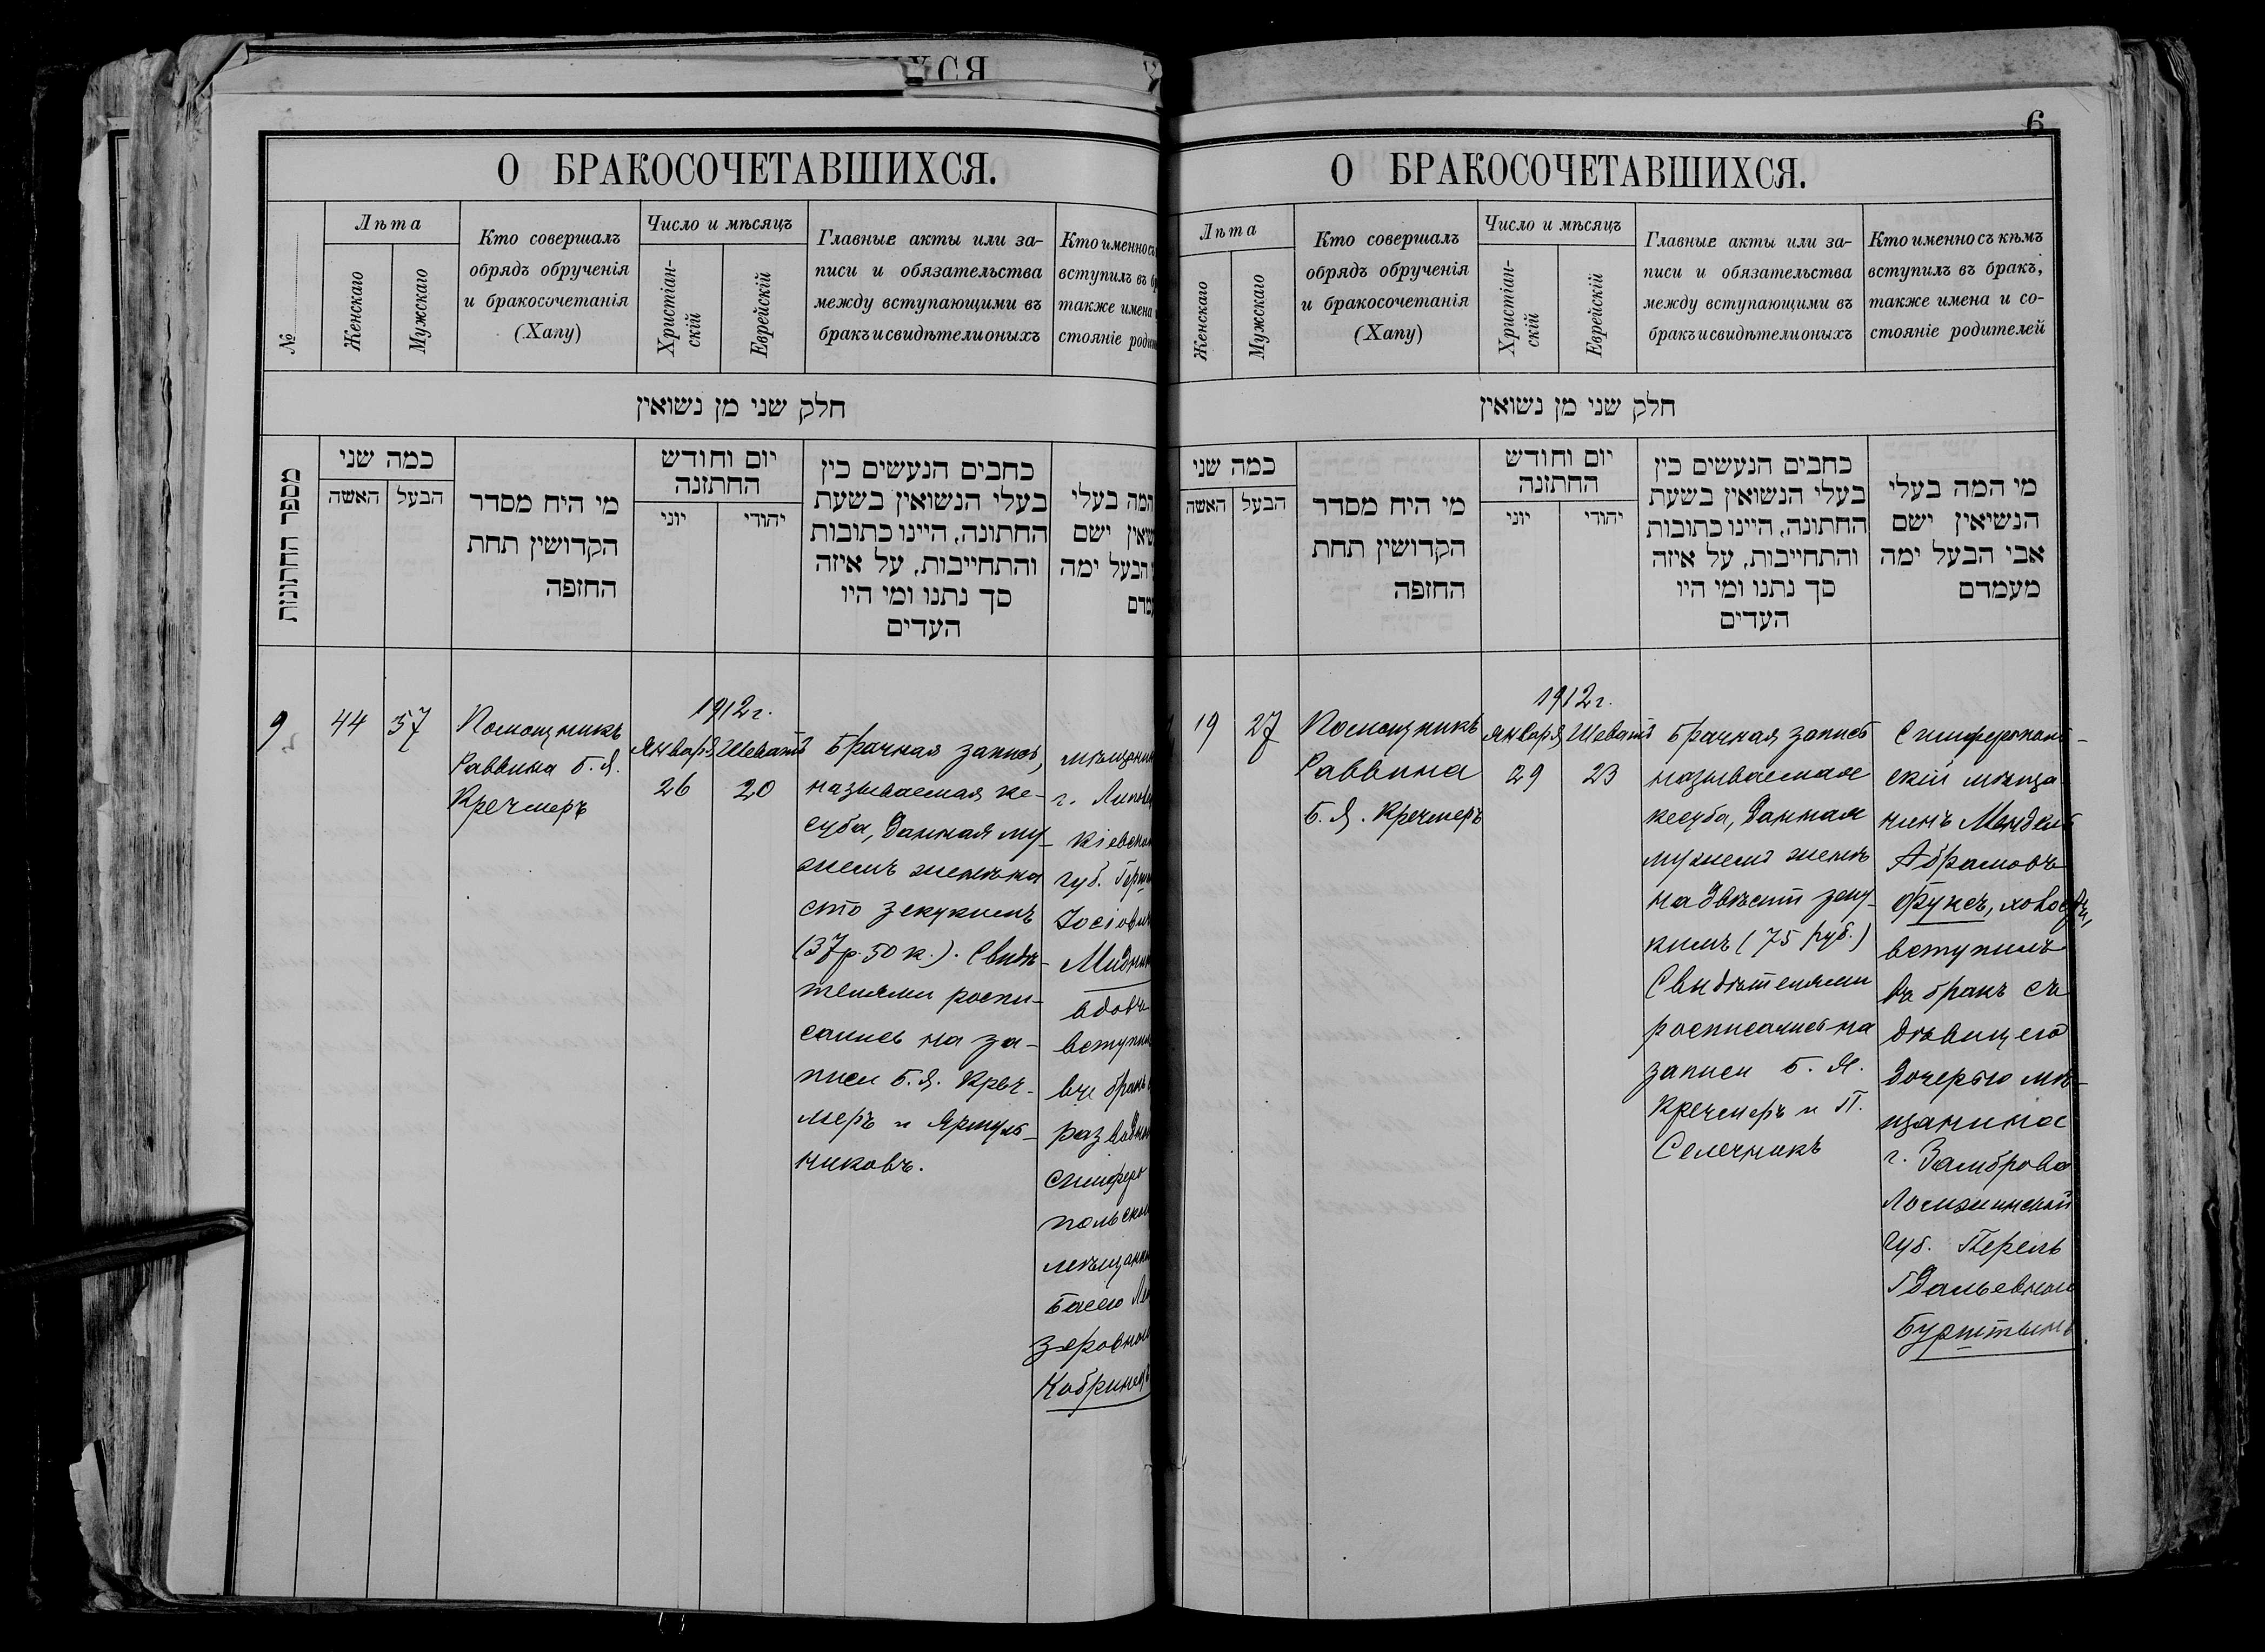 О БРАКОСОЧЕТАВШИХСЯ.
№
Лѣта
Женскаго
Мужскаго
Кто совершалъ
обрядъ обрученія
и бракосочетанія
(Хапу)
Число и мѣсяцъ
Христіан-
скій
Еврейскій
Главные акты или за-
писи и обязательства
между вступающими въ
бракъ и свидѣтели оныхъ
Кто именно съ
вступилъ въ
также имена
стояніе
חלק שני מן נשואין
מספר החתונות
כמה שני
האשה
הבעל
מי היח מסדר
הקדושין תחת
החזפה
יום וחודש
החתזנה
יוני
יהודי
כחבים הנעשים כין
בעלי הנשואין בשעת
החתונה, היינו כתובות
והתחייבות, על איזה
סך נתנו ומי היו
העדים
המה בעלי
ישם
הבעל ימה
9
44
57
Помощникъ
Раввина Б. Я.
Кречмеръ
1912 г.
Января
26
Шеватъ
20
Брачная запись,
называемая ке-
суба, данная му-
жемъ женѣ на
сто зекукимъ
(37 р. 50 к.). Свидѣ-
телями роспи-
сались на за-
писи Б. Я. Креч-
меръ и Ярмуль-
никовъ.
г.
губ.
вдовъ
въ бракъ
мѣщанк
Басею
зеровно
О БРАКОСОЧЕТАВШИХСЯ.
6
Лѣта
Женскаго
Мужскаго
Кто совершалъ
обрядъ обрученія
и бракосочетанія
(Хапу)
Число и мѣсяцъ
Христіан-
скій
Еврейскій
Главные акты или за-
писи и обязательства
между вступающими въ
бракъ и свидѣтели оныхъ
Кто именно съ кѣмъ
вступилъ въ бракъ,
также имена и со-
стояніе родителей
חלק שני מן נשואין
כמה שני
האשה
הבעל
מי היח מסדר
הקדושין תחת
החזפה
יום וחודש
החתזנה
יוני
יהודי
כחבים הנעשים כין
בעלי הנשואין בשעת
החתונה, היינו כתובות
והתחייבות, על איזה
סך נתנו ומי היו
העדים
מי המה בעלי
הנשיאין ישם
אבי הבעל ימה
מעמדם
19
27
Помощникъ
Раввина
Б. Я. Кречмеръ
1912 г.
Января
29
Шеватъ
23
Брачная запись
называемая
кесуба, данная
мужемъ женѣ
на двѣсти зеку-
кимъ (75 руб.)
Свидѣтелями
росписались на
записи Б. Я.
Кречмеръ и П.
Селечникъ
Симферополь-
скій мѣща-
нинъ Мендель
Абрамовъ
Фуксъ, холостъ,
вступилъ
въ бракъ съ
дѣвицею
дочерью мѣ-
щанина
г. Замброва
Ломжинской
губ. Перель
Гдальевною
Бурштынъ.